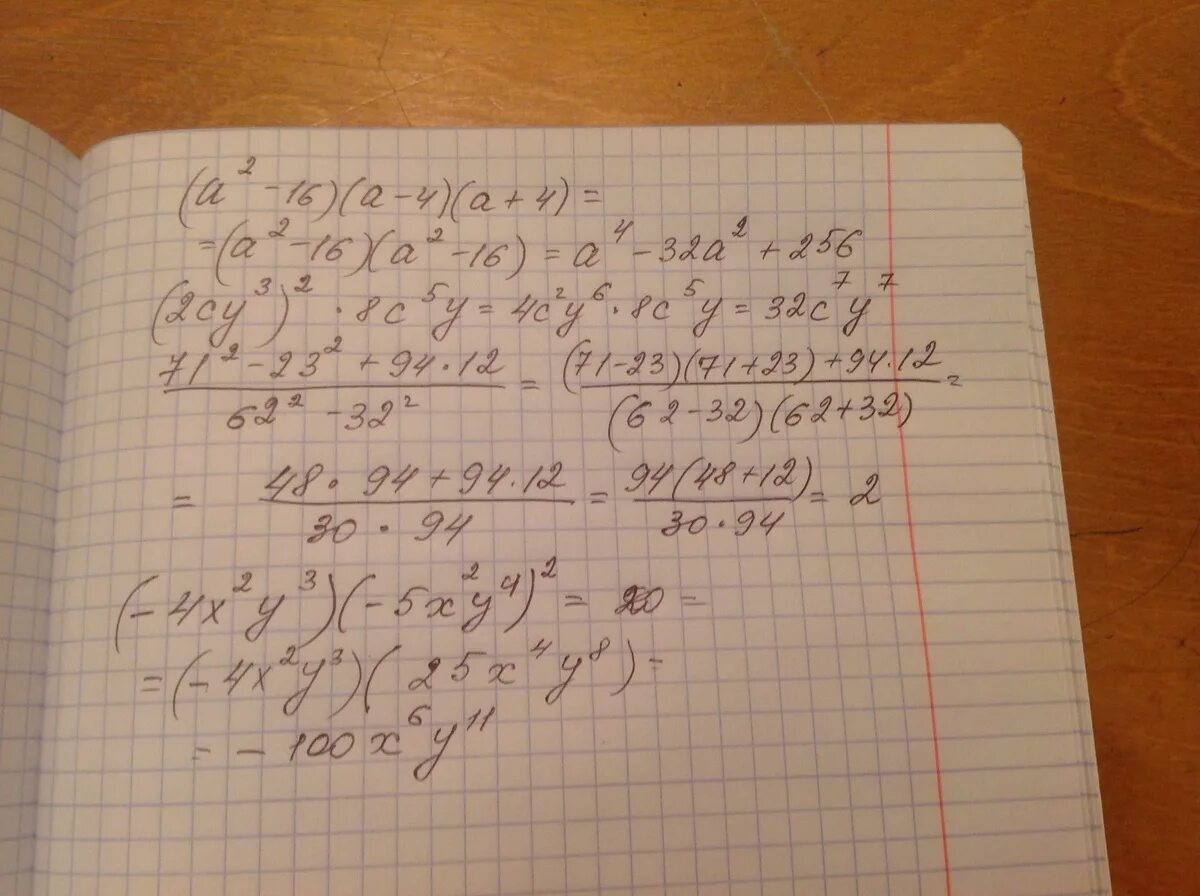 (a² - 16)(a - 4)(a + 4) =
= (a² - 16)(a² - 16) = a⁴ - 32a² + 256
(2cy³)² · 8c⁵y = 4c²y⁶ · 8c⁵y = 32c⁷y⁷
(71² - 23² + 94 · 12)/(62² - 32²) = ((71 - 23)(71 + 23) + 94 · 12)/((62 - 32)(62 + 32)) =
= (48 · 94 + 94 · 12)/(30 · 94) = (94(48 + 12))/(30 · 94) = 2
(-4x²y³)(-5x²y⁴)² = 20 =
= (-4x²y³)(25x⁴y⁸) =
= -100x⁶y¹¹